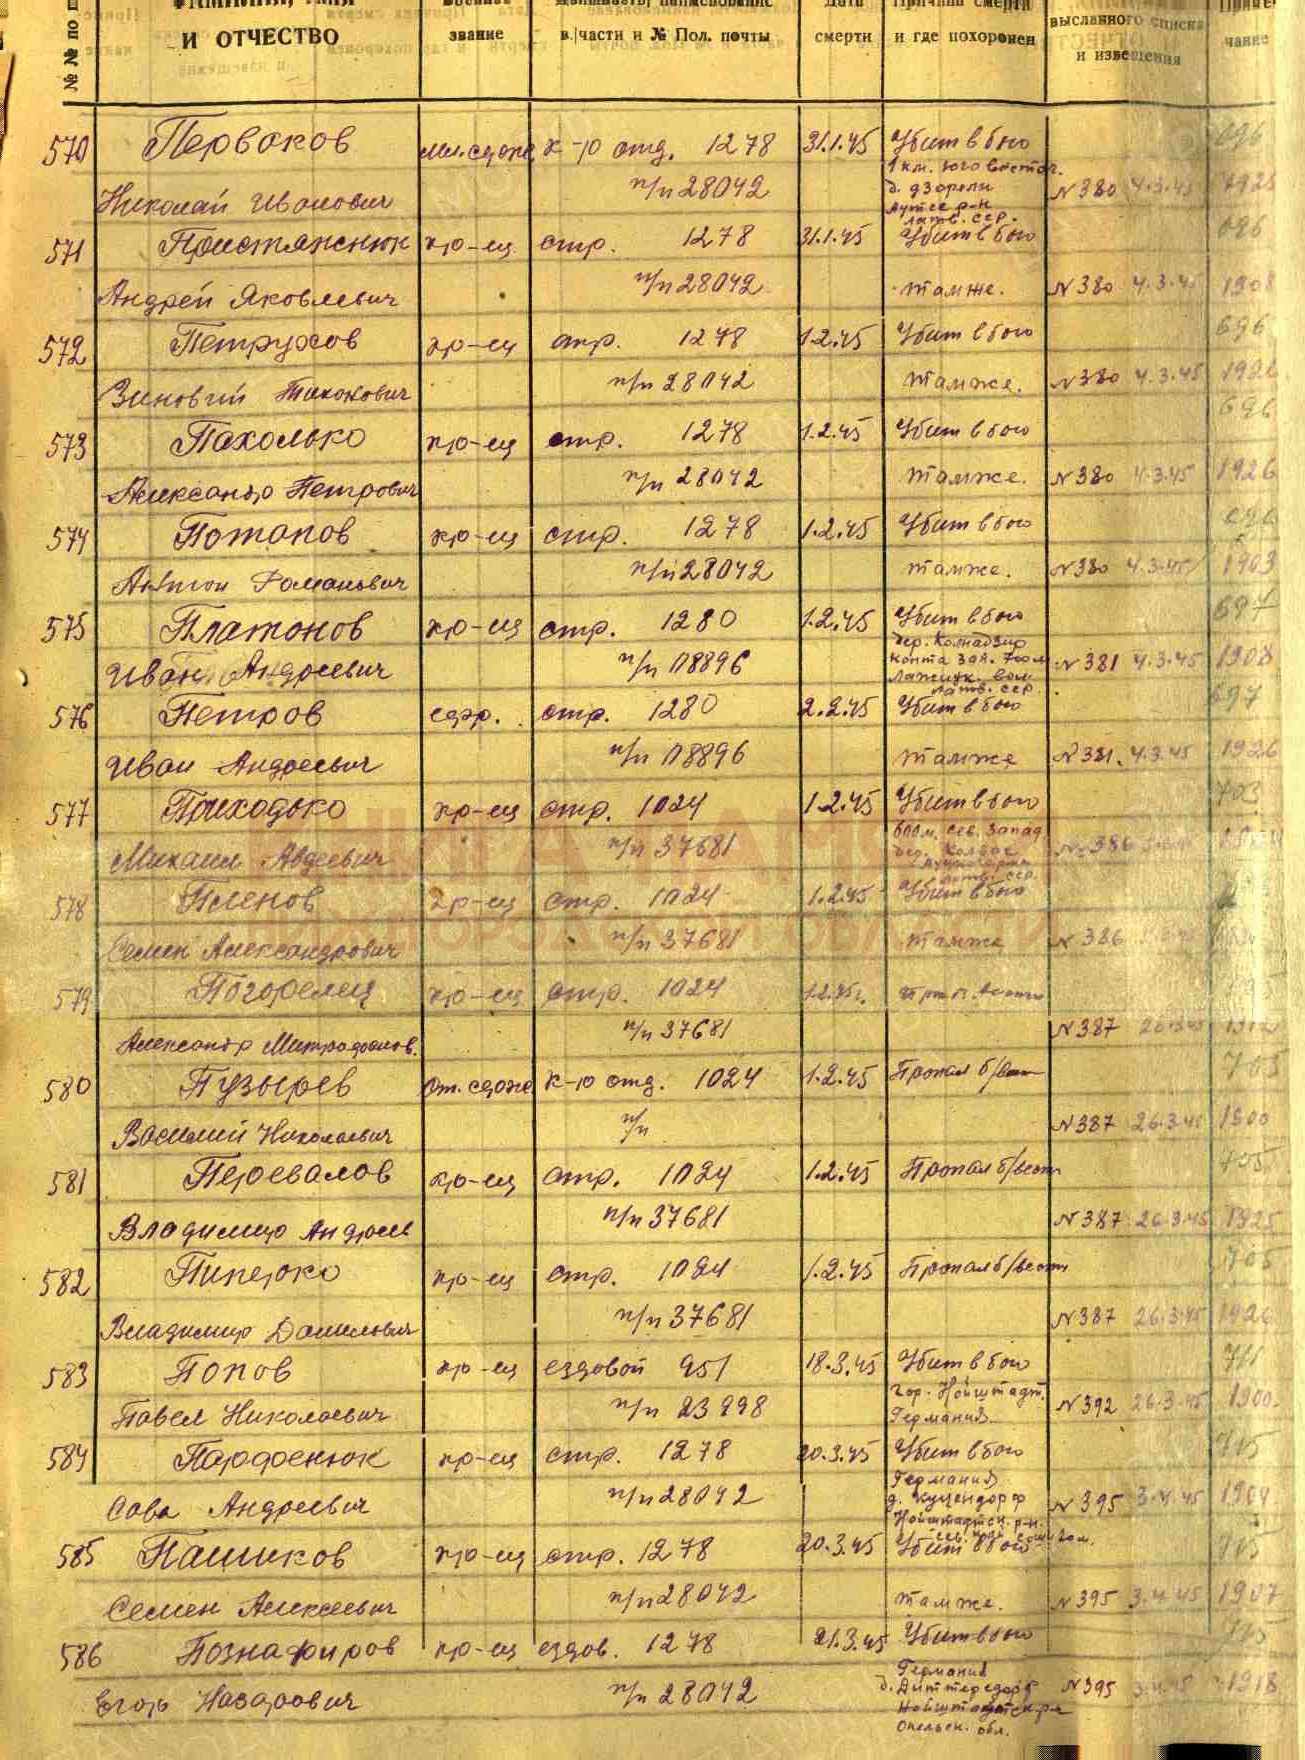 ФАМИЛИЯ, ИМЯ И ОТЧЕСТВО
звание
в. части и № Пол. почты
смерти
Причина смерти и где похоронен
высланного списка и извещения
570 Перваков мл. серж к-р отд. 1278 31.1.45 Убит в бою
1 км. юго восточ.
Николай Иванович п/п 28042 №380 4.3.45 1925
латв. сср.
571 кр-ец стр. 1278 31.1.45 Убит в бою 696
Андрей Яковлевич п/п 28042 там же. №380 4.3.45 1908
572 Петрухов кр-ец стр. 1278 1.2.45 Убит в бою 696
Зиновий Тихонович п/п 28042 там же. №380 4.3.45 1926
573 Пахолько кр-ец стр. 1278 1.2.45 Убит в бою 696
Александр Петрович п/п 28042 там же. №380 4.3.45 1926
574 Потапов кр-ец стр. 1278 1.2.45 Убит в бою 696
Антон Романович п/п 28042 там же. №380 4.3.45 1903
575 Платонов кр-ец стр. 1280 1.2.45 Убит в бою 697
Иван Андреевич п/п 08896 №381 4.3.45 1908
латв. сср.
576 Петров серж. стр. 1280 2.2.45 Убит в бою 697
Иван Андреевич п/п 08896 там же №381. 4.3.45 1926
577 Приходько кр-ец стр. 1024 1.2.45 Убит в бою 703
Михаил Авдеевич п/п 37681 №386
КНИГА ПАМЯТИ
578 Пленов кр-ец стр. 1024 1.2.45 Убит в бою
НИЖЕГОРОДСКОЙ ОБЛАСТИ
Семен Александрович п/п 37681 там же №386
579 Погорелец кр-ец стр. 1024 1.2.45г.
Александр Митрофанов. п/п 37681 №387 26.3.45 1912
580 Пузырев ст. серж к-р отд. 1024 1.2.45 Пропал б/вести 705
Василий Николаевич п/п №387 26.3.45 1900
581 Перевалов кр-ец стр. 1024 1.2.45 Пропал б/вести 705
Владимир Андреев п/п 37681 №387 26.3.45 1925
582 Пиперко кр-ец стр. 1024 1.2.45 Пропал б/вести 705
Владимир Данилович п/п 37681 №387 26.3.45 1926
583 Попов кр-ец ездовой 951 18.3.45 Убит в бою 711
гор. Нойштадт.
Павел Николаевич п/п 23998 Германия. №392 26.3.45 1900.
584 Парфенюк кр-ец стр. 1278 20.3.45 Убит в бою 715
Германия
Сава Андреевич п/п 28042 д. Кущендорф №395 3.4.45 1904
Нойштадтск. р-н.
585 Пашиков кр-ец стр. 1278 20.3.45 Убит в бою 715
Семен Алексеевич п/п 28042 там же. №395 3.4.45 1907
586 Познафиров кр-ец ездов. 1278 21.3.45 Убит в бою 715
Германия
Егор Назарович п/п 28042 д. Диттередорф №395 3.4.45 1918
Нойштадтск р-н
Опельн. обл.